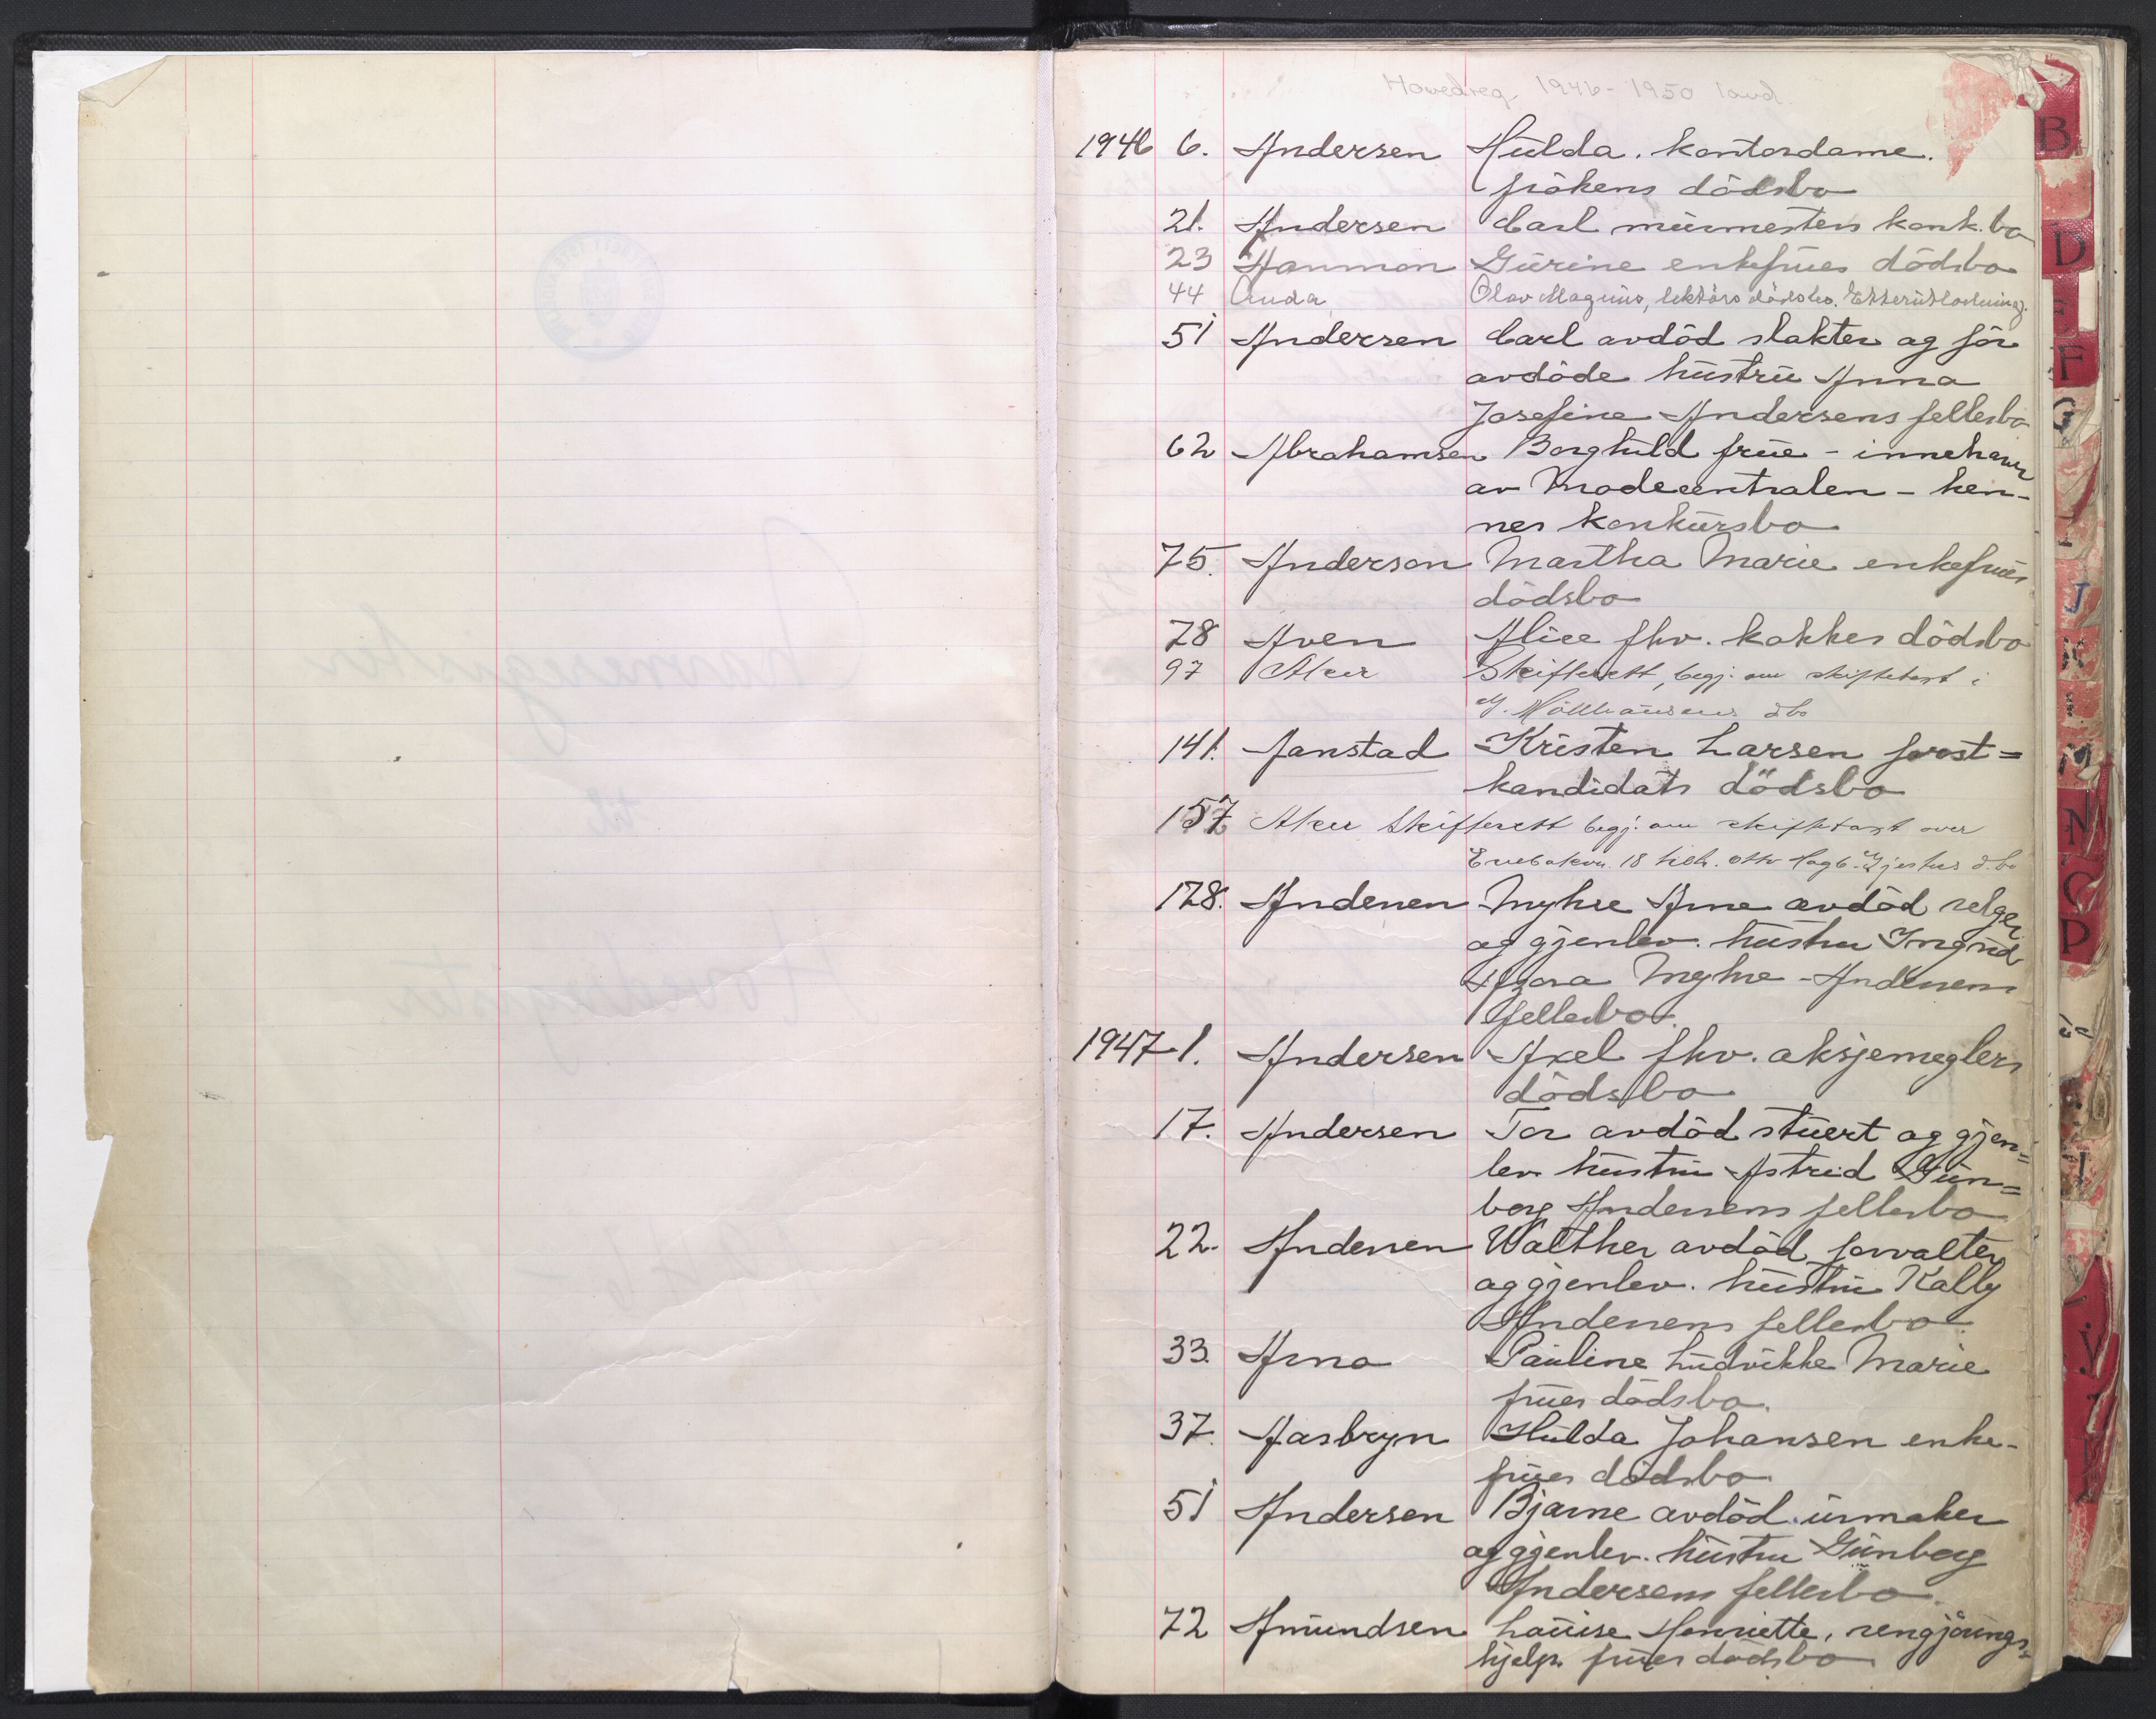 Hovedreg. 1946-1950
1946 6. Andersen Hulda. kontordame.
frøkens dødsbo
21. Andersen Carl murmesters konk.bo
23 Aanmon Gurine enkefrues dødsbo
44 Anda Olav Magnus, lektors dødsbo. Etterutlodning.
51 Andersen Carl avdød slakter og før
avdøde hustru Anna
Josefine Andersens fellesbo
62 Abrahamsen Borghild frue - innehaver
av Modecentralen - hen-
nes konkursbo
75. Anderson Martha Marie enkefrues
dødsbo
78 Aven Alice fhv. kokkes dødsbo
97 Aker Skifterett, begj. om skiftetakst i
dbo
141. Aanstad Kristen Larsen forst=
kandidats dødsbo
157 Aker Skifterett begj. om skiftetakst over
18 d.bo
178. Andersen Myhre Arne avdød selger
og gjenlev. hustru Ingrid
Agora Myhre-Andersens
fellesbo.
1947 1. Andersen Axel fhv. aksjemeglers
dødsbo
17. Andersen Tor avdød stuert og gjen=
lev. hustru Astrid Gun=
borg Andersens fellesbo
22. Andersen Walther avdød forvalter
og gjenlev. hustru Kally
Andersens fellesbo
33. Arna Pauline Ludvikke Marie
frues dødsbo.
37. Aasbryn Hulda Johansen enke-
frues dødsbo
51 Andersen Bjarne avdød urmaker
og gjenlev. hustru Gunborg
Andersens fellesbo.
72 Amundsen Louise Henriette, rengjørings=
hjelp frues dødsbo
B
D
F
G
J
K
M
N
O
P